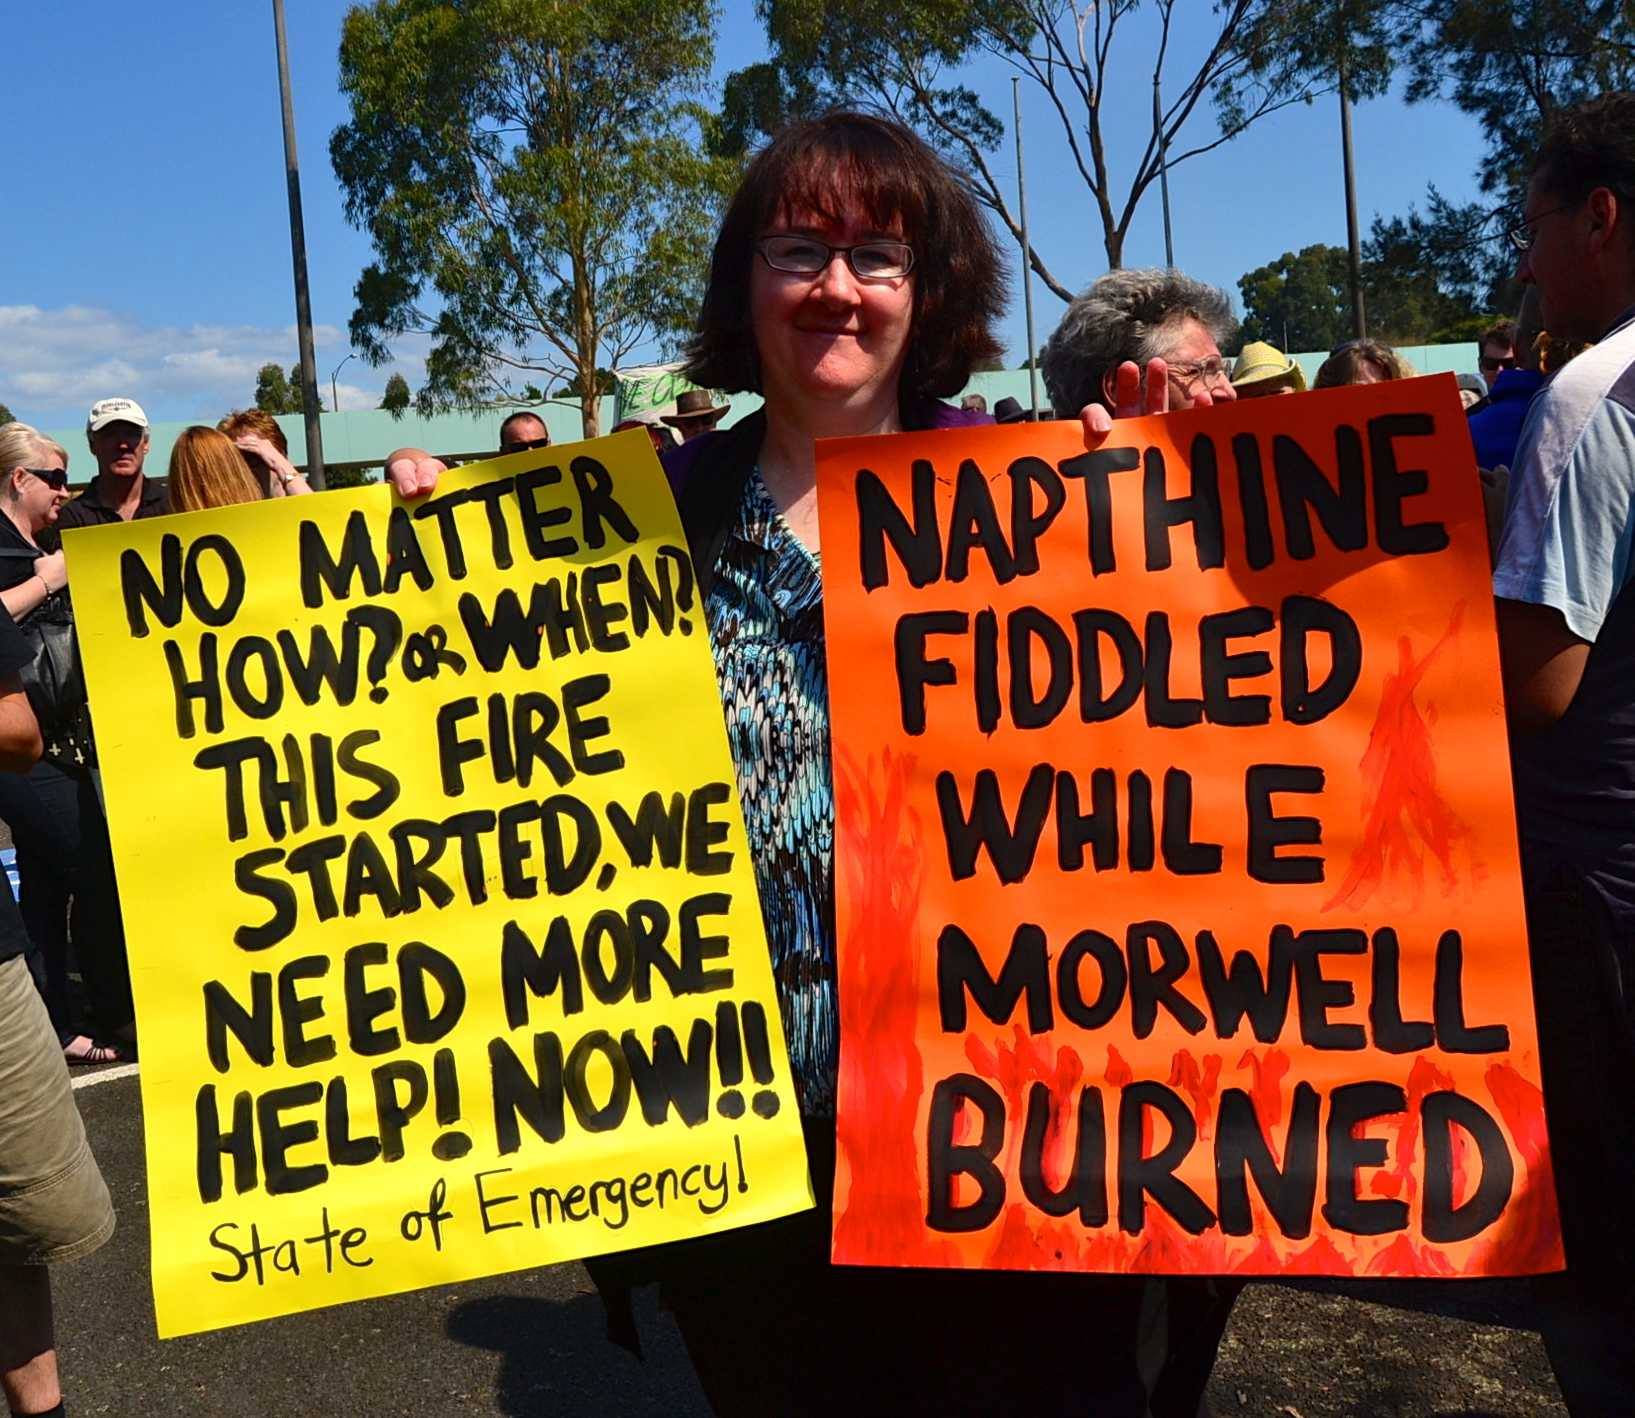 NO MATTER
HOW? OR WHEN?
THIS FIRE
STARTED, WE
NEED MORE
HELP! NOW!!
State of Emergency!
NAPTHINE
FIDDLED
WHILE
MORWELL
BURNED